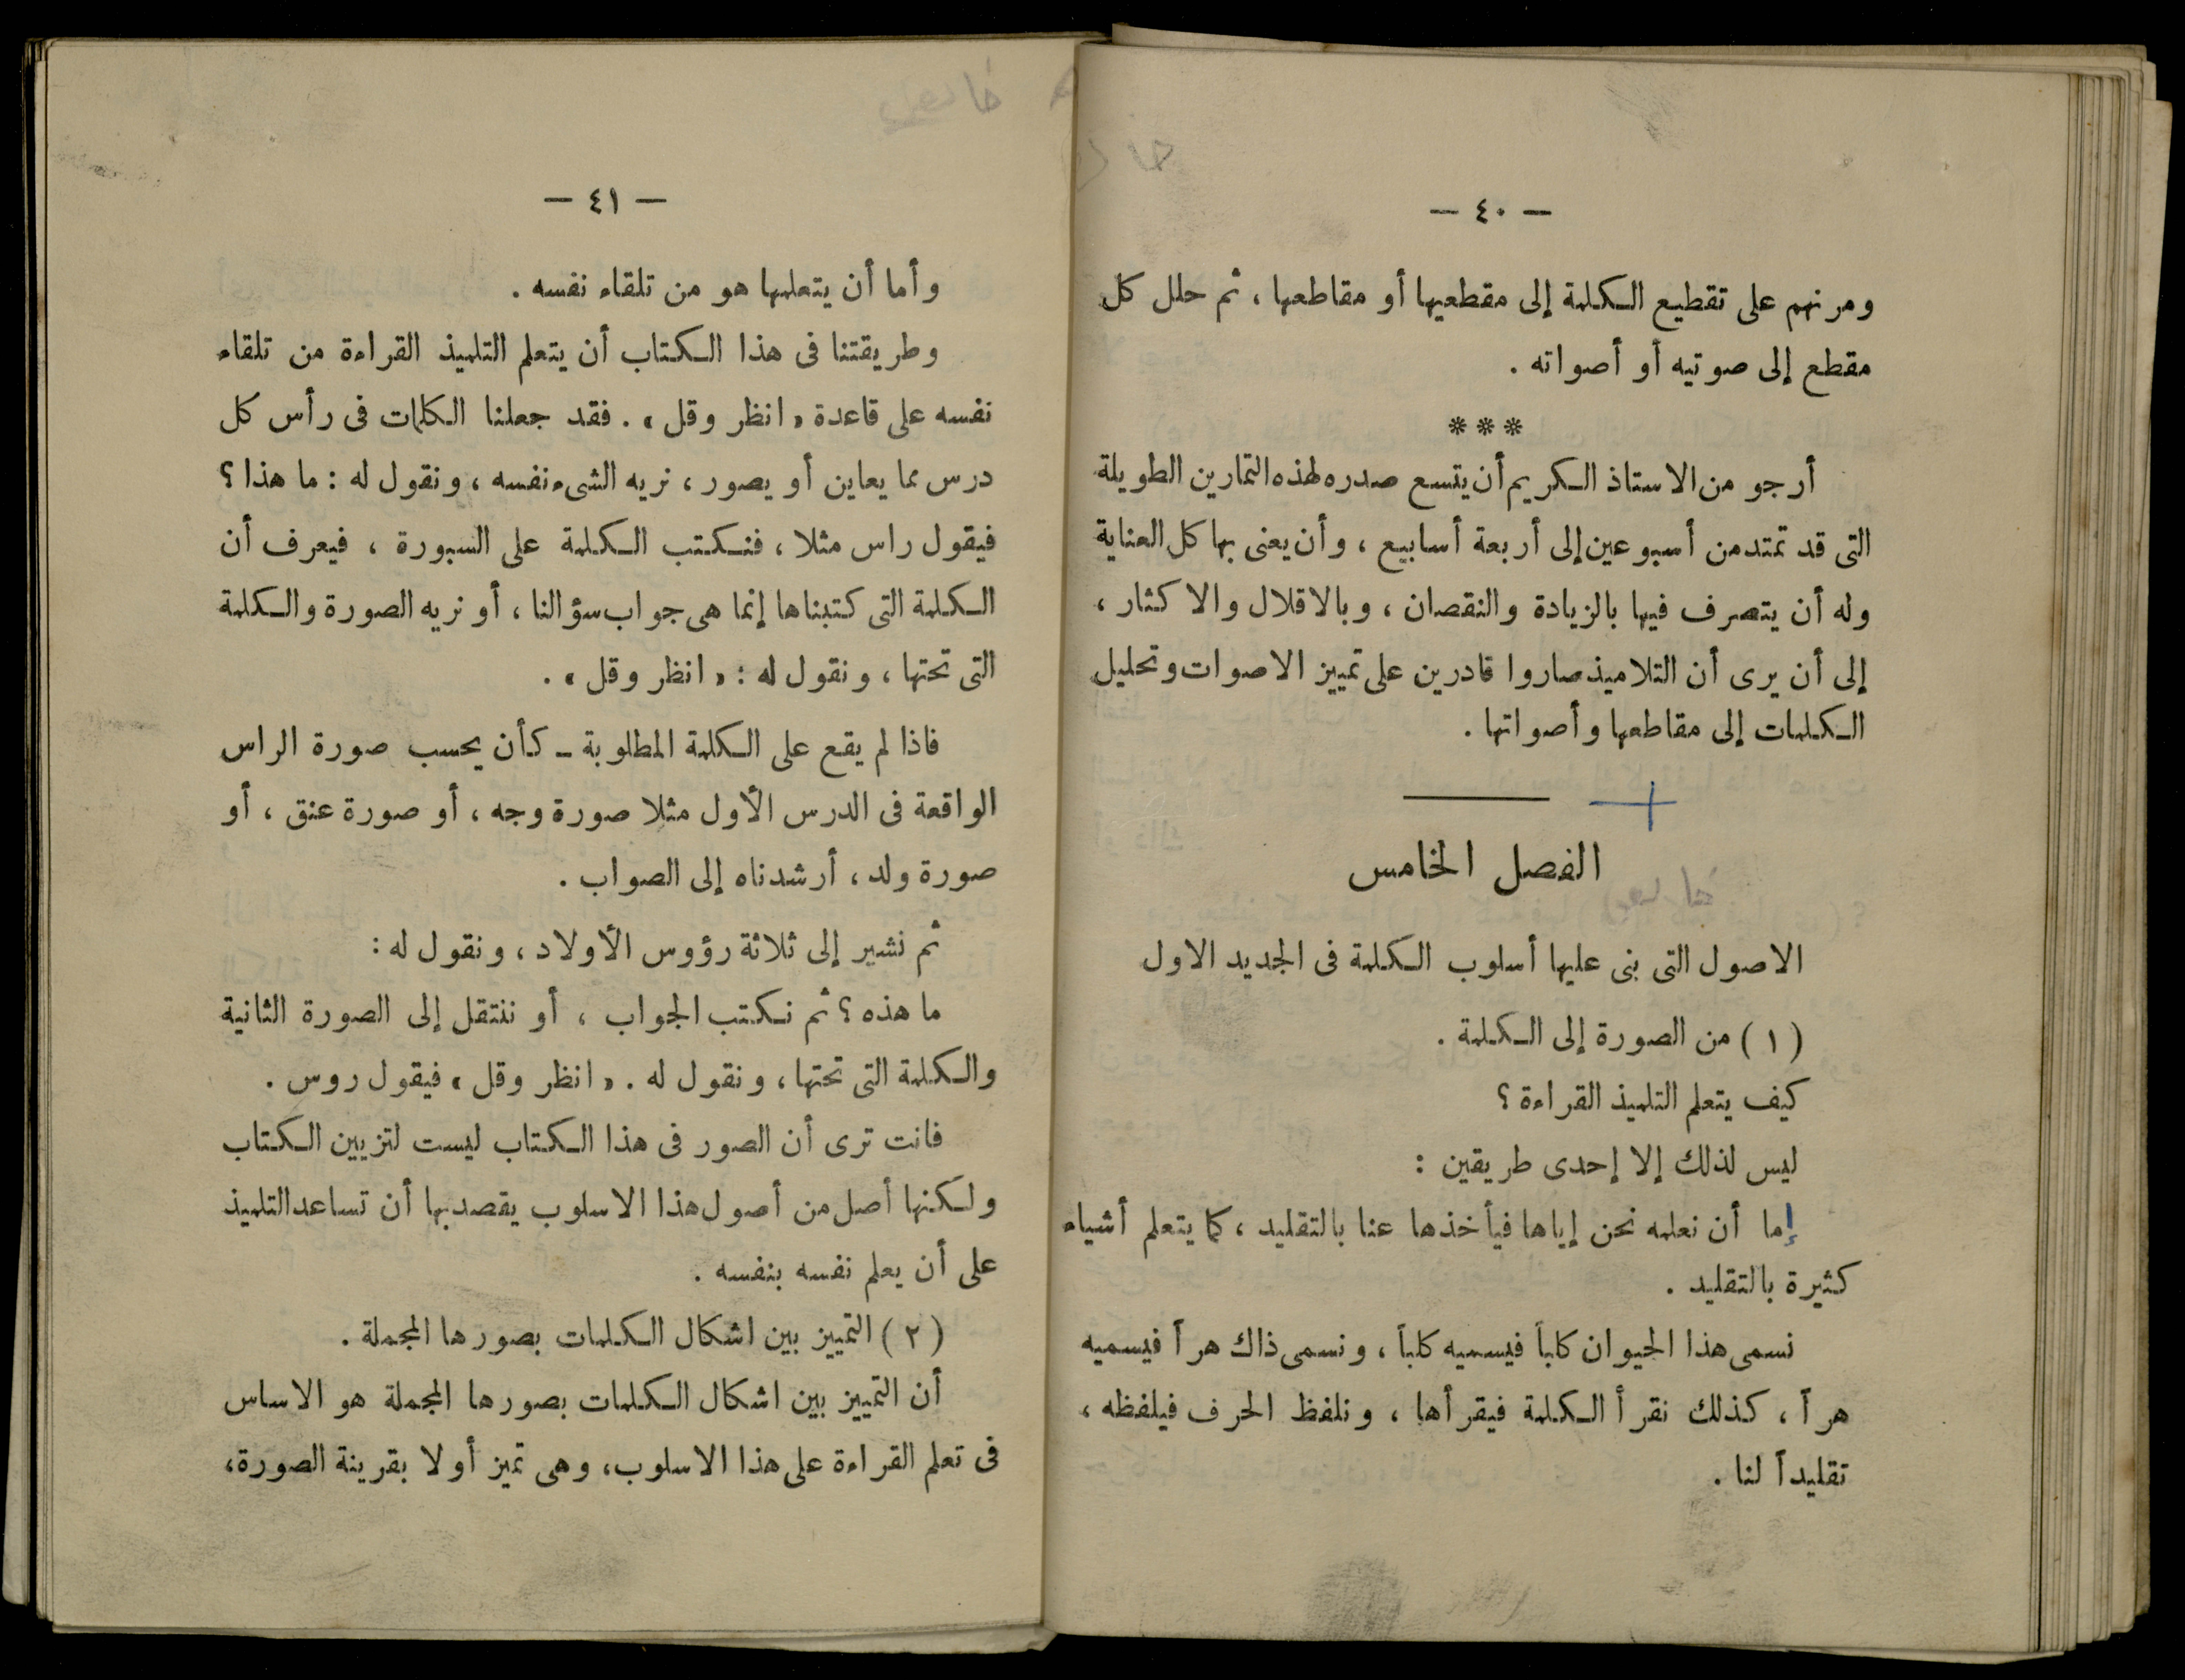 — ٤٠ —
ومرنهم على تقطيع الكلمة إلى مقطعيها أو مقاطعها ، ثم حلل كل
مقطع إلى صوتيه أو أصواته .
***
أرجو من الاستاذ الكريم أن يتسع صدره لهذه التمارين الطويلة
التى قد تمتد من أسبوعين إلى أربعة أسابيع ، وأن يعنى بها كل العناية
وله أن يتصرف فيها بالزيادة والنقصان ، وبالاقلال والاكثار ،
إلى أن يرى أن التلاميذ صاروا قادرين على تمييز الاصوات وتحليل
الكلمات إلى مقاطعها وأصواتها .
الفصل الخامس
الاصول التى بنى عليها أسلوب الكلمة فى الجديد الاول
( ١ ) من الصورة إلى الكلمة .
كيف يتعلم التلميذ القراءة ؟
ليس لذلك إلا إحدى طريقين :
إما أن نعلمه نحن إياها فيأخذها عنا بالتقليد ، كما يتعلم أشياء
كثيرة بالتقليد .
نسمى هذا الحيوان كلباً فيسميه كلباً ، ونسمى ذاك هراً فيسميه
هراً ، كذلك نقرأ الكلمة فيقرأها ، ونلفظ الحرف فيلفظه ،
تقليداً لنا .
— ٤١ —
وأما أن يتعلمها هو من تلقاء نفسه .
وطريقتنا فى هذا الكتاب أن يتعلم التلميذ القراءة من تلقاء
نفسه على قاعدة « انظر وقل » . فقد جعلنا الكلمات فى رأس كل
درس مما يعاين أو يصور ، نريه الشىء نفسه ، ونقول له : ما هذا ؟
فيقول راس مثلا ، فنكتب الكلمة على السبورة ، فيعرف أن
الكلمة التى كتبناها إنما هى جواب سؤالنا ، أو نريه الصورة والكلمة
التى تحتها ، ونقول له : « انظر وقل » .
فاذا لم يقع على الكلمة المطلوبة ـ كأن يحسب صورة الراس
الواقعة فى الدرس الأول مثلا صورة وجه ، أو صورة عنق ، أو
صورة ولد ، أرشدناه إلى الصواب .
ثم نشير إلى ثلاثة رؤوس الأولاد ، ونقول له :
ما هذه ؟ ثم نكتب الجواب ، أو ننتقل إلى الصورة الثانية
والكلمة التى تحتها ، ونقول له . « انظر وقل » فيقول روس .
فانت ترى أن الصور فى هذا الكتاب ليست لتزيين الكتاب
ولكنها أصل من أصول هذا الاسلوب يقصد بها أن تساعد التلميذ
على أن يعلم نفسه بنفسه .
( ٢ ) التمييز بين اشكال الكلمات بصورها المجملة .
أن التمييز بين اشكال الكلمات بصورها المجملة هو الاساس
فى تعلم القراءة على هذا الاسلوب ، وهى تميز أولا بقرينة الصورة ،